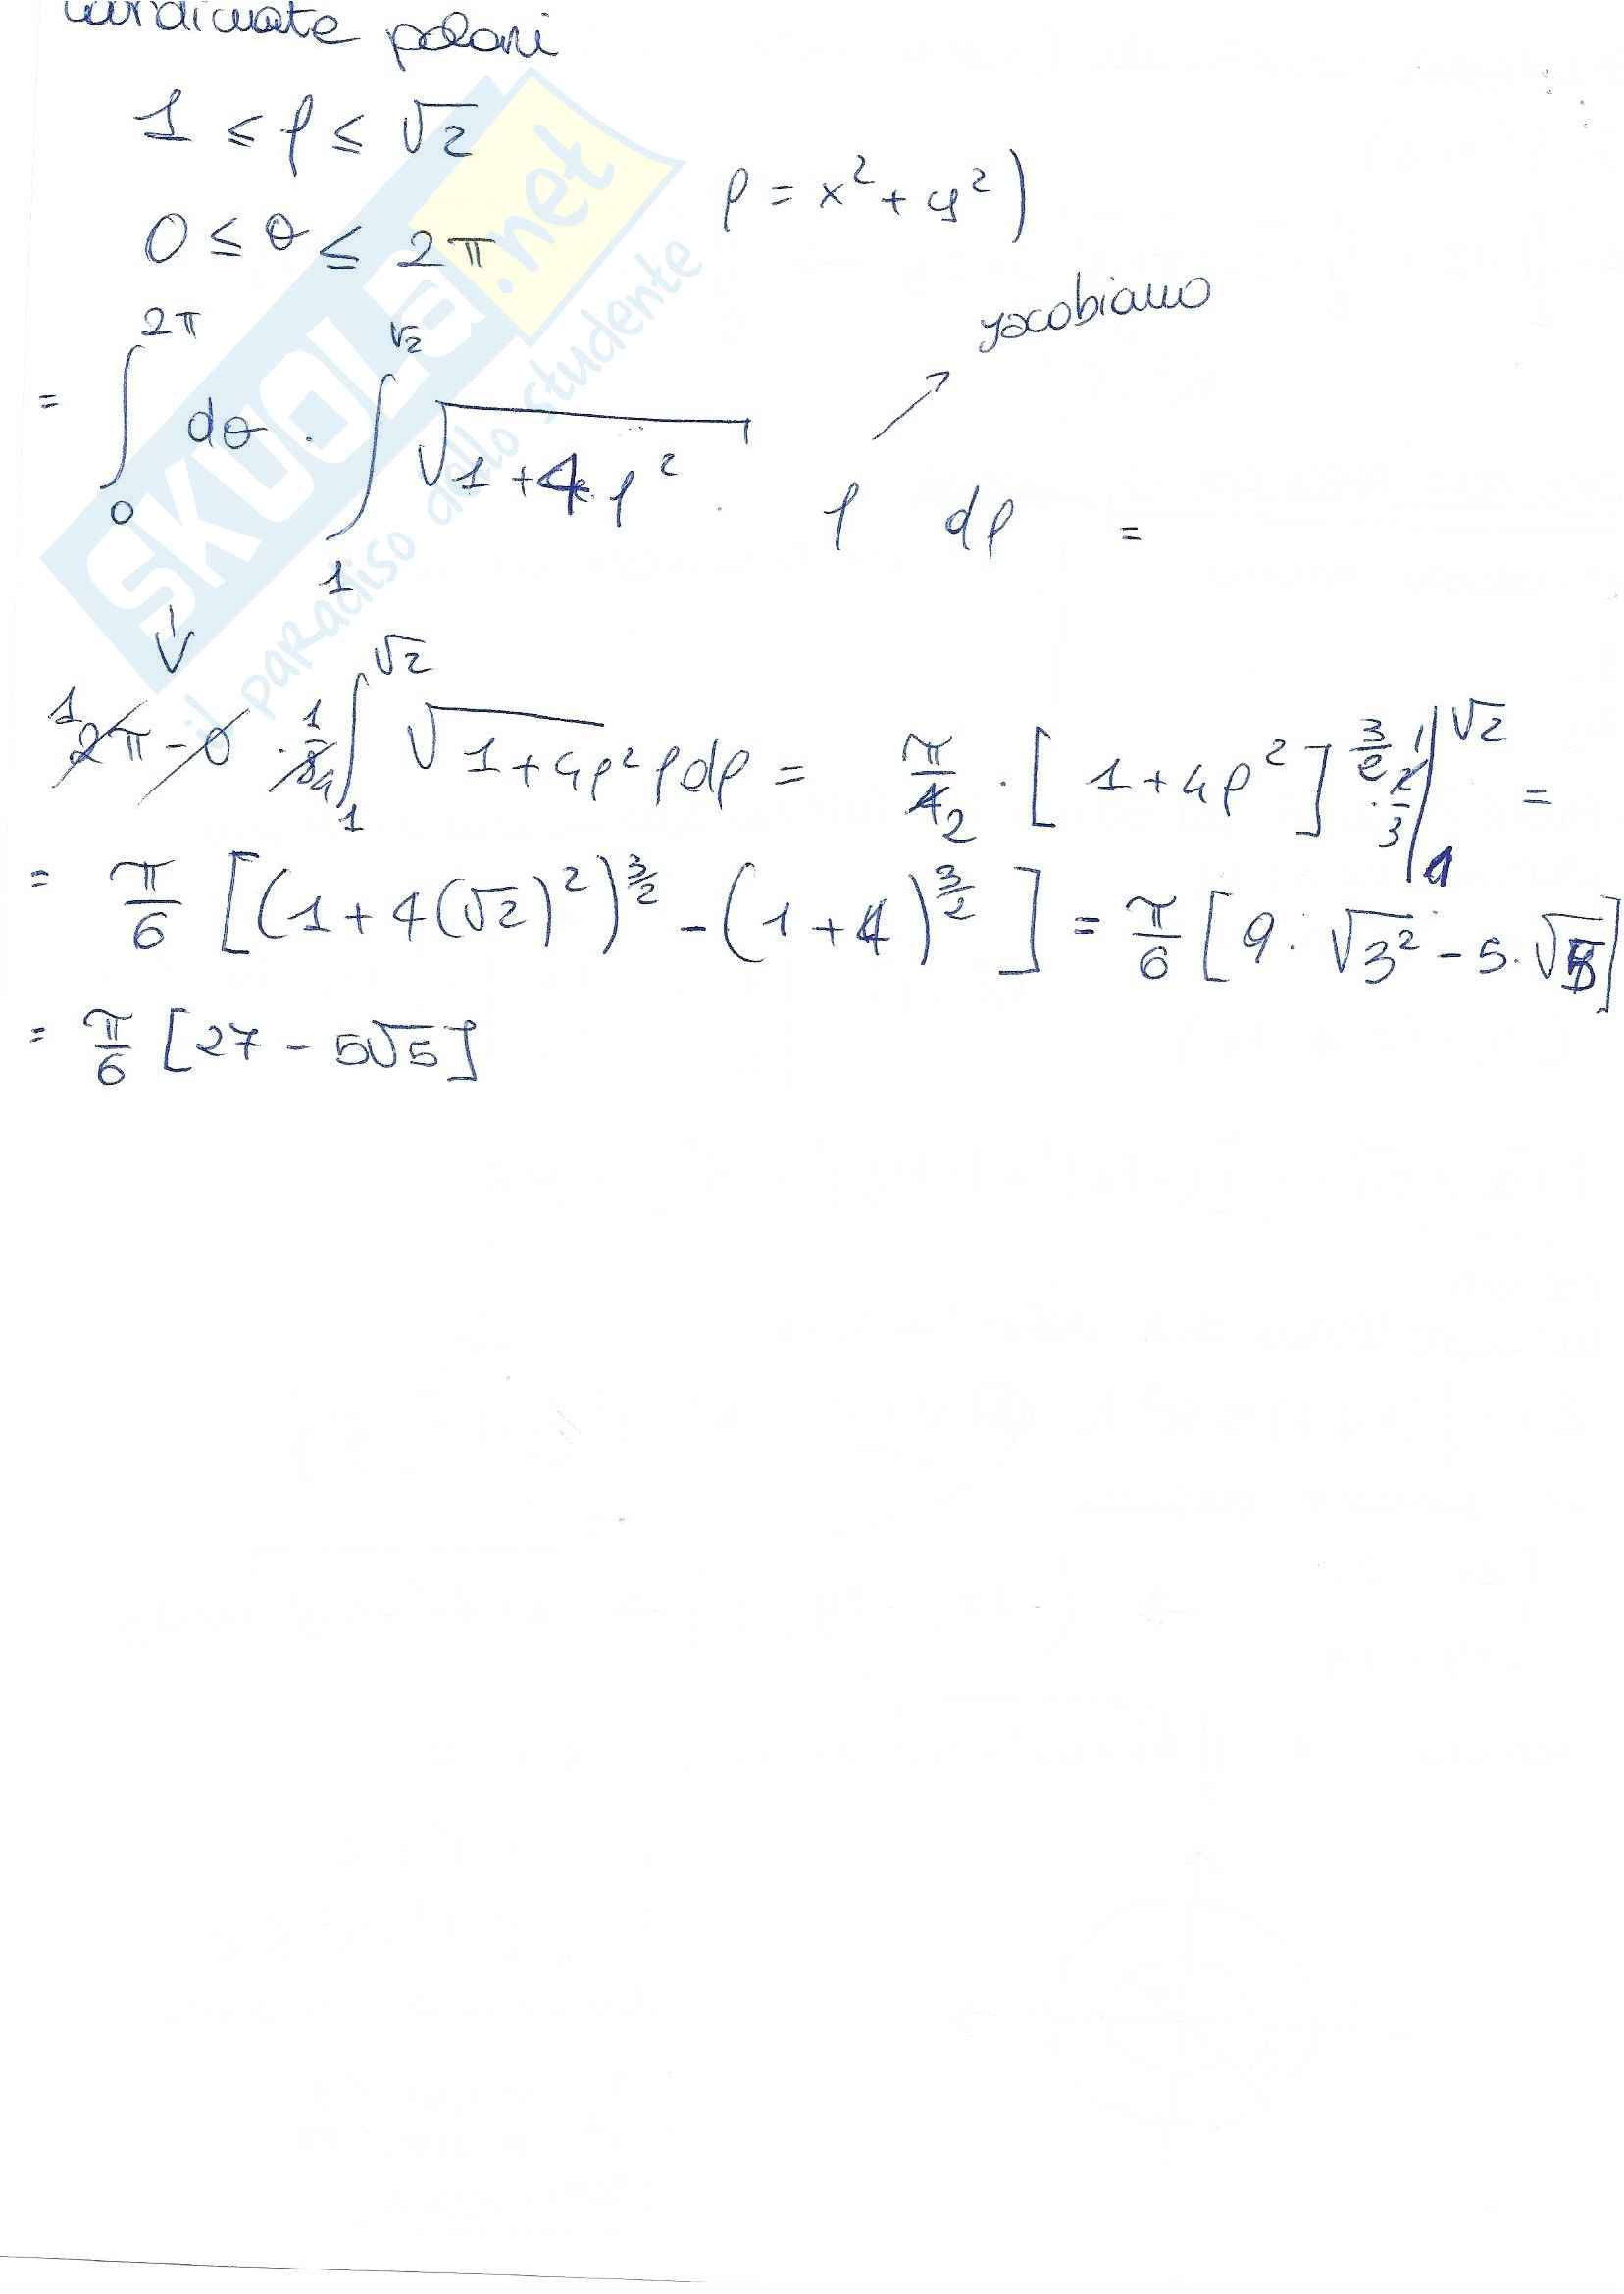 coordinate polari
1 ≤ ρ ≤ √2
ρ = x² + y² )
0 ≤ θ ≤ 2π
jacobiano
= ∫₀^{2π} dθ · ∫₁^{√2} √(1 + 4 · ρ²) · ρ dρ =
2π - 0 · 1/8 ∫₁^{√2} √(1 + 4ρ²) ρ dρ = π/4 2 · [1 + 4ρ²]^{3/2} · 2/3 |₁^{√2} =
= π/6 [(1 + 4(√2)²)^{3/2} - (1 + 4)^{3/2}] = π/6 [9 · √3² - 5 · √5]
= π/6 [27 - 5√5]
SKUOLA.net
il paradiso dello studente